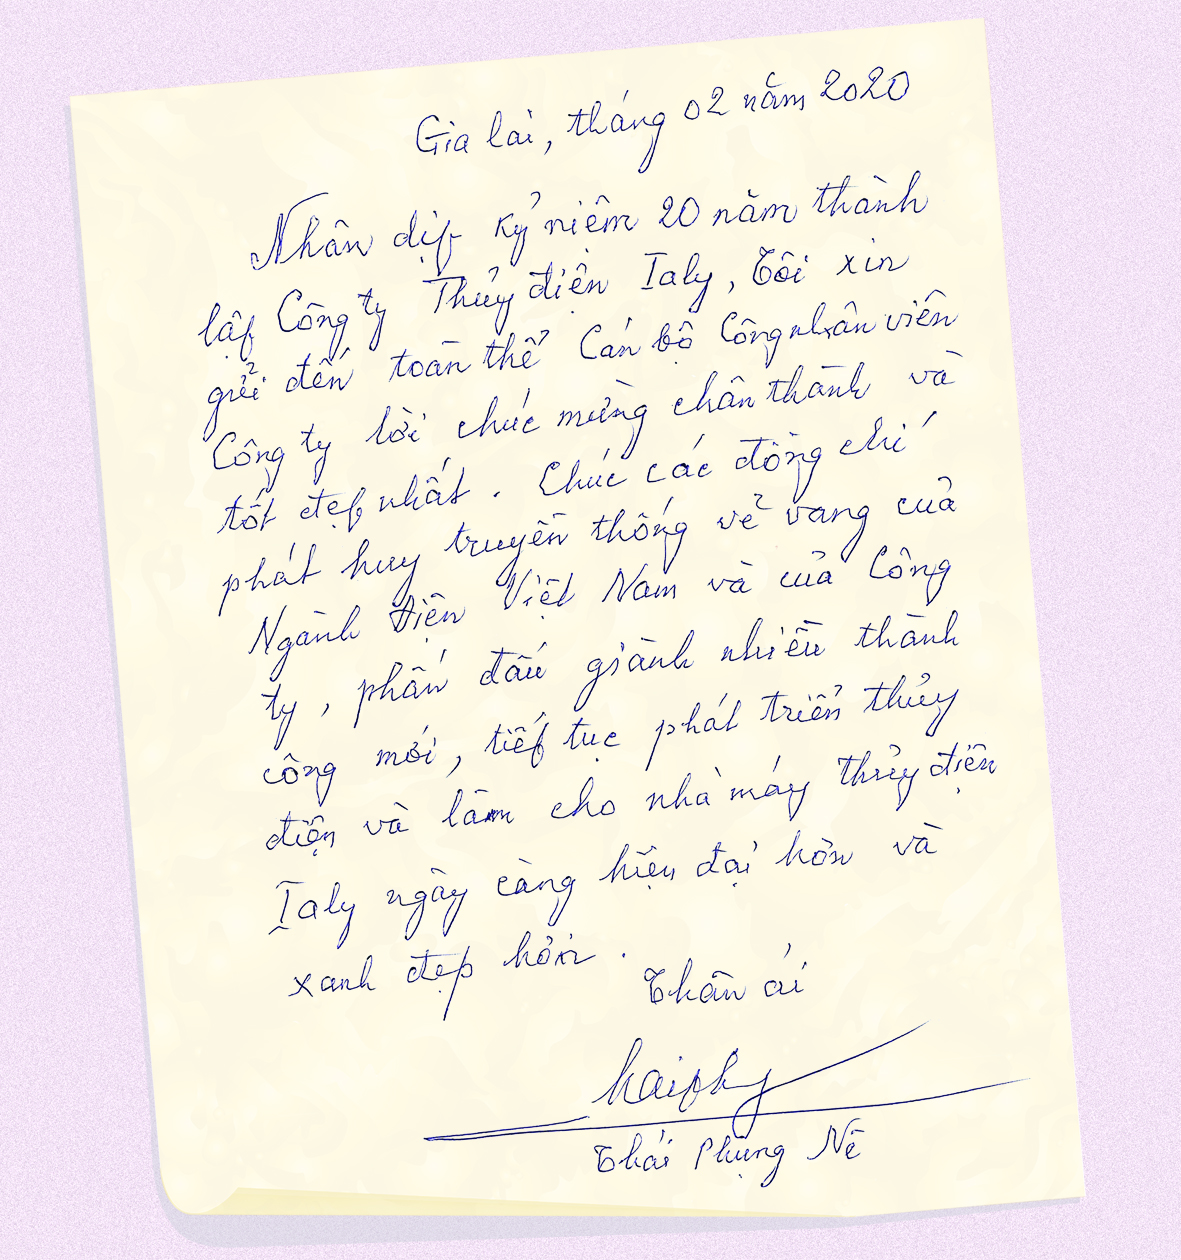 Gia lai, tháng 02 năm 2020
Nhân dịp kỷ niệm 20 năm thành
lập Công ty Thủy điện Ialy, Tôi xin
gửi đến toàn thể Cán bộ Công nhân viên
Công ty lời chúc mừng chân thành và
tốt đẹp nhất. Chúc các đồng chí
phát huy truyền thống vẻ vang của
Ngành Điện Việt Nam và của Công
ty, phấn đấu giành nhiều thành
công mới, tiếp tục phát triển thủy
điện và làm cho nhà máy thủy điện
Ialy ngày càng hiện đại hơn và
xanh đẹp hơn.
Thân ái
Thái Phụng Nê